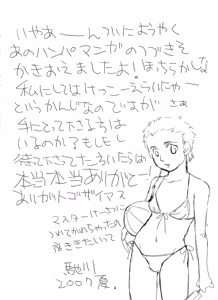 いやあーんついにようやく
あのハンパマンガのつづきを
かきおえましたよ！ほっちらかしな
私にしてはけっこーえらいにゃー
というかんじなのですが さぁ
手にとって下さる方は
いるのか？もしも
待って下さってた方いたらば
本当本当ありがとー
ありがトゴザイマス
マスターけーさつに
つれてかれちゃったの
2007夏.